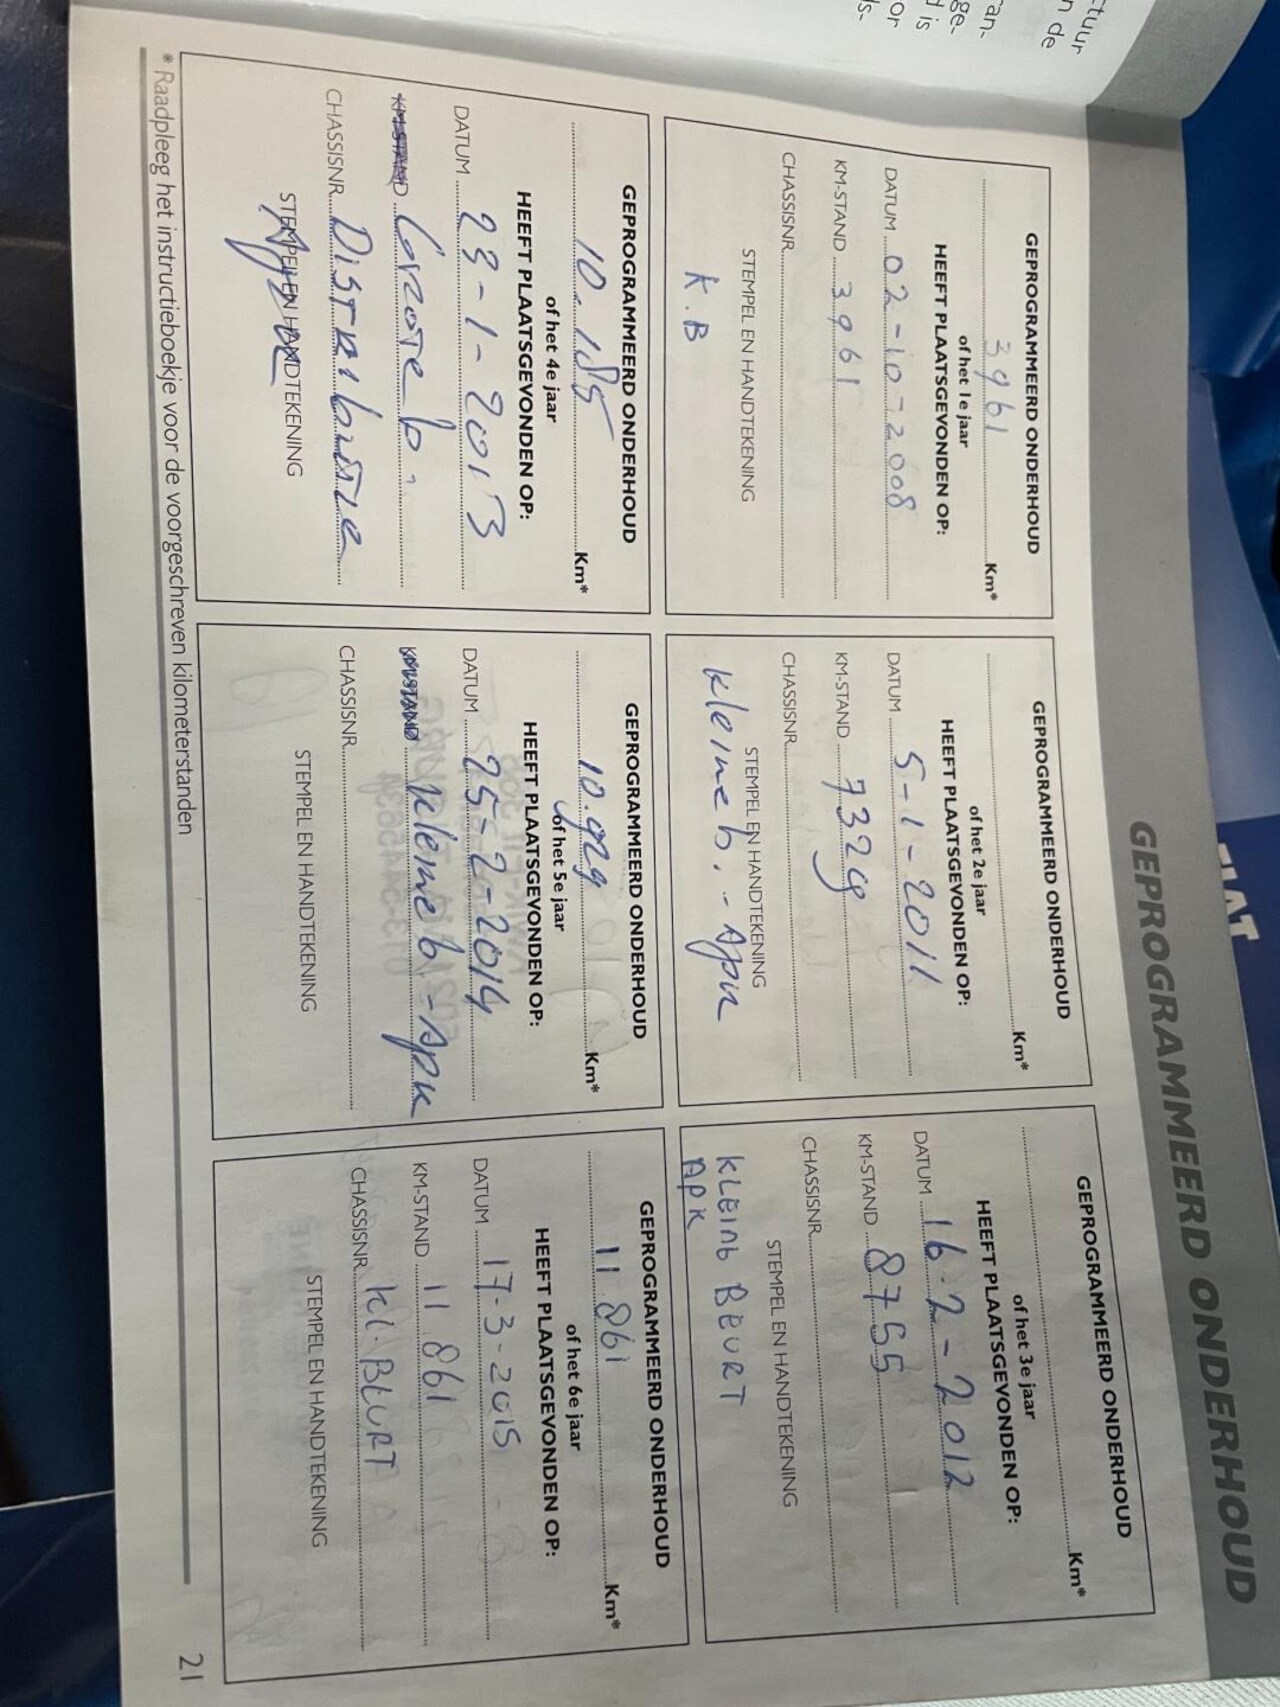 GEPROGRAMMEERD ONDERHOUD
GEPROGRAMMEERD ONDERHOUD
3961 Km*
of het 1e jaar
HEEFT PLAATSGEVONDEN OP:
DATUM 02-10-2008
KM-STAND 3961
CHASSISNR.
STEMPEL EN HANDTEKENING
K.B
GEPROGRAMMEERD ONDERHOUD
Km*
of het 2e jaar
HEEFT PLAATSGEVONDEN OP:
DATUM 5-1-2011
KM-STAND 7329
CHASSISNR.
STEMPEL EN HANDTEKENING
kleine b. - Apk
GEPROGRAMMEERD ONDERHOUD
Km*
of het 3e jaar
HEEFT PLAATSGEVONDEN OP:
DATUM 16-2-2012
KM-STAND 8755
CHASSISNR.
STEMPEL EN HANDTEKENING
KLEINE BEURT
APK
GEPROGRAMMEERD ONDERHOUD
10.185 Km*
of het 4e jaar
HEEFT PLAATSGEVONDEN OP:
DATUM 23-1-2013
KM-STAND Grote b.
CHASSISNR. Distributie
STEMPEL EN HANDTEKENING
Apk
GEPROGRAMMEERD ONDERHOUD
10.929 Km*
of het 5e jaar
HEEFT PLAATSGEVONDEN OP:
DATUM 25-2-2014
KM-STAND kleine b - Apk
CHASSISNR.
STEMPEL EN HANDTEKENING
GEPROGRAMMEERD ONDERHOUD
11.861 Km*
of het 6e jaar
HEEFT PLAATSGEVONDEN OP:
DATUM 17-3-2015
KM-STAND 11.861
CHASSISNR. KL. BEURT
STEMPEL EN HANDTEKENING
* Raadpleeg het instructieboekje voor de voorgeschreven kilometerstanden
21